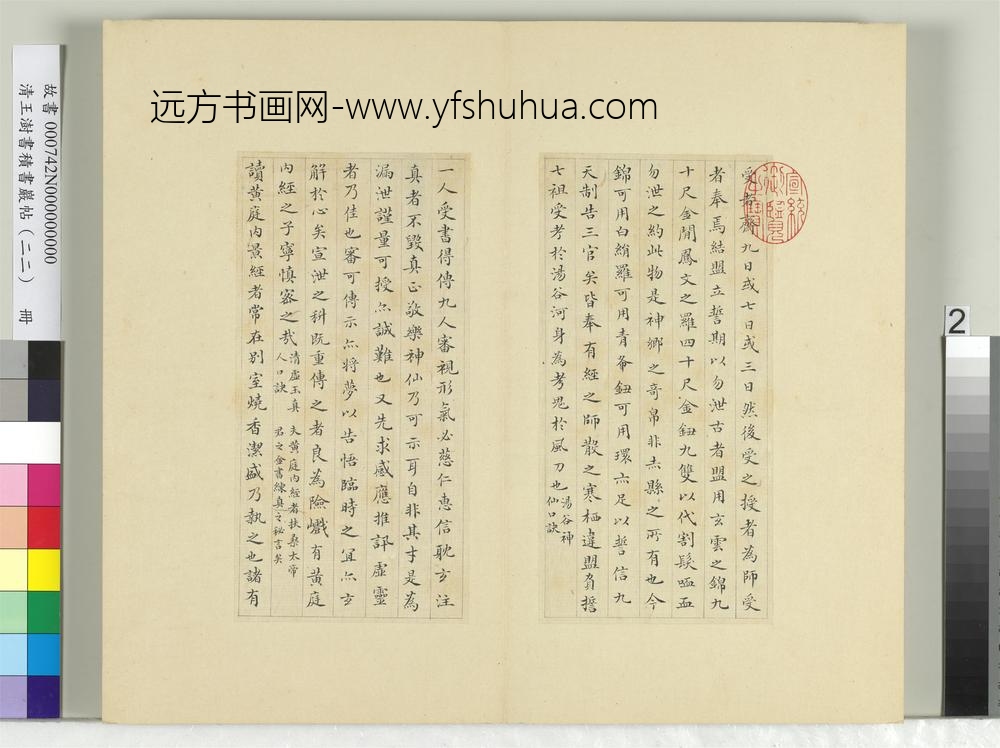 远方书画网-www.yfshuhua.com
故書 000742N000000000
清王澍書積書巖帖(二二) 冊
2
受者齋九日或七日或三日然後受之授者為師受
者奉焉結盟立誓期以勿泄古者盟用玄雲之錦九
十尺金簡鳳文之羅四十尺金鈕九雙以代割髮歃血
勿泄之約此物是神鄉之奇帛非赤縣之所有也今
錦可用白絹羅可用青布鈕可用環亦足以誓信九
天制告三官矣皆奉有經之師散之寒栖違盟負誓
七祖受考於湯谷河身為考鬼於風刀也湯谷神
仙口訣
一人受書得傳九人審視形氣必慈仁惠信耽玄注
真者不毀真正敬樂神仙乃可示耳自非其才是為
漏泄謹量可授亦誠難也又先求感應推訊虛靈
者乃佳也審可傳示亦將夢以告悟臨時之宜亦玄
解於心矣宣泄之科既重傳之者良為險巇有黃庭
內經之子寧慎密之哉清虛玉真 夫黃庭內經者扶桑太帝
人口訣 君之金書練真之秘言矣
讀黃庭內景經者常在別室燒香潔盛乃執之也諸有